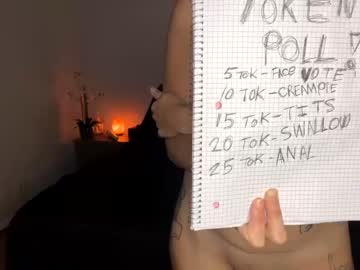 TOKEN
POLL!
5 TOK-FACE VOTE
10 TOK-CREAMPIE
15 TOK-TITS
20 TOK-SWALLOW
25 TOK-ANAL